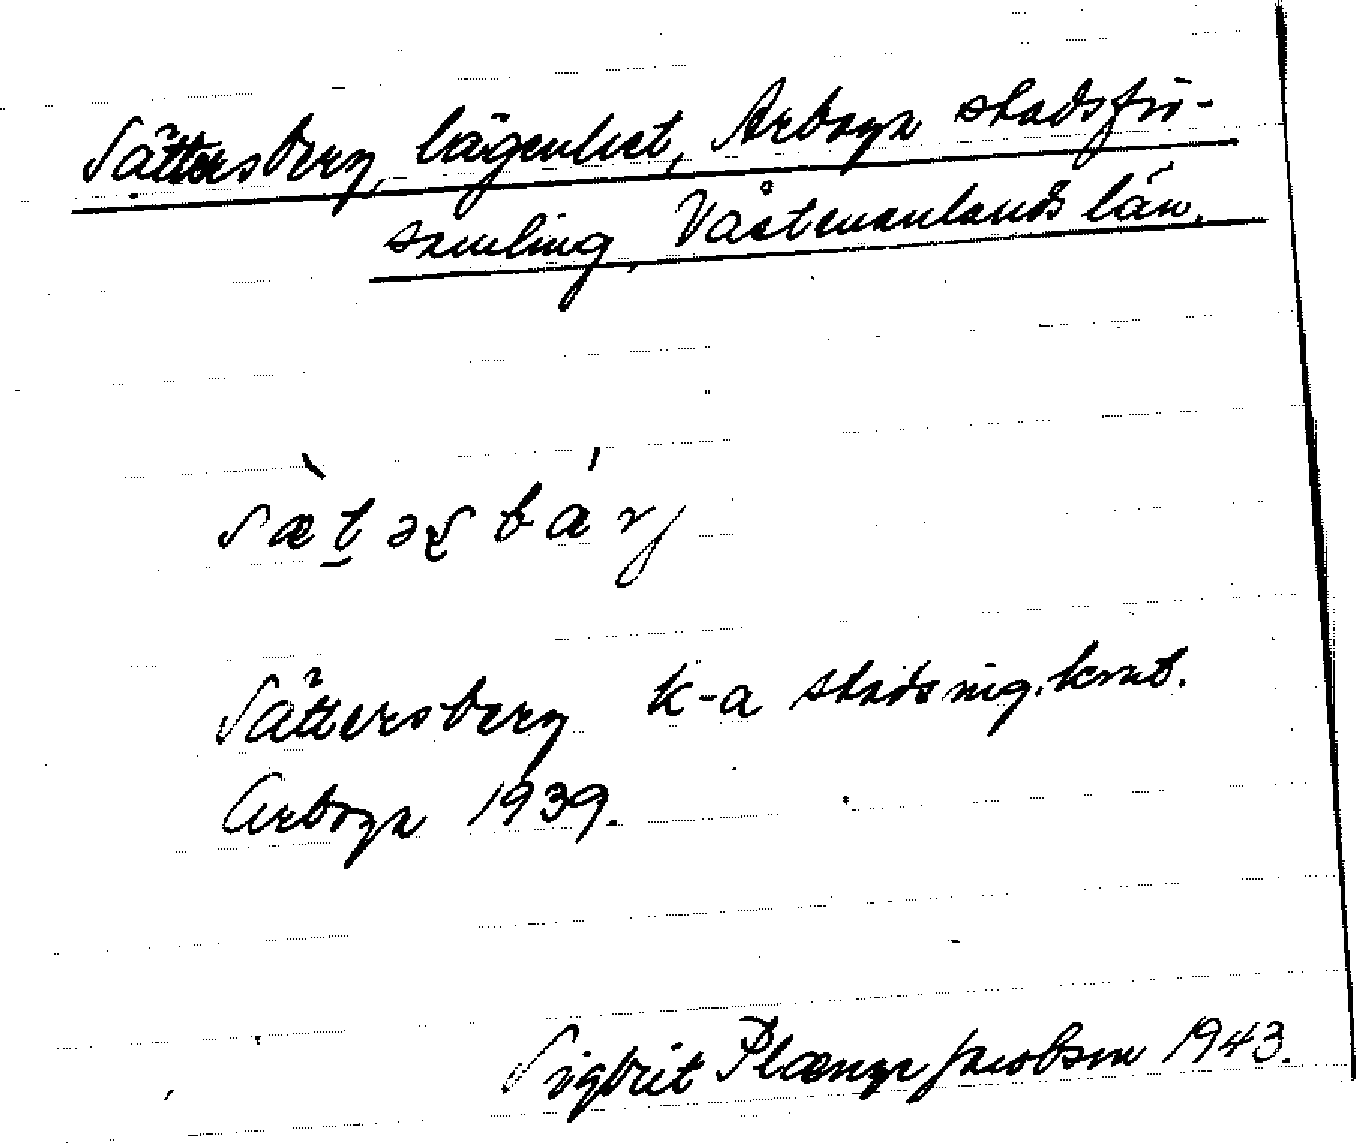 Sättersberg, lägenhet, Arboga stadsför-
samling, Västmanlands län.
sæ̀t̠əʂbárj
Sättersberg k-a stadsing.kont.
Arboga 1939.
Sigbrit Plænge Jacobson 1943.